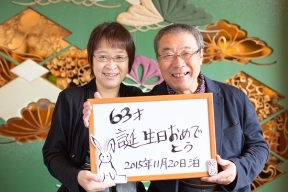 63才
誕生日おめで
とう
2015年11月20日泊